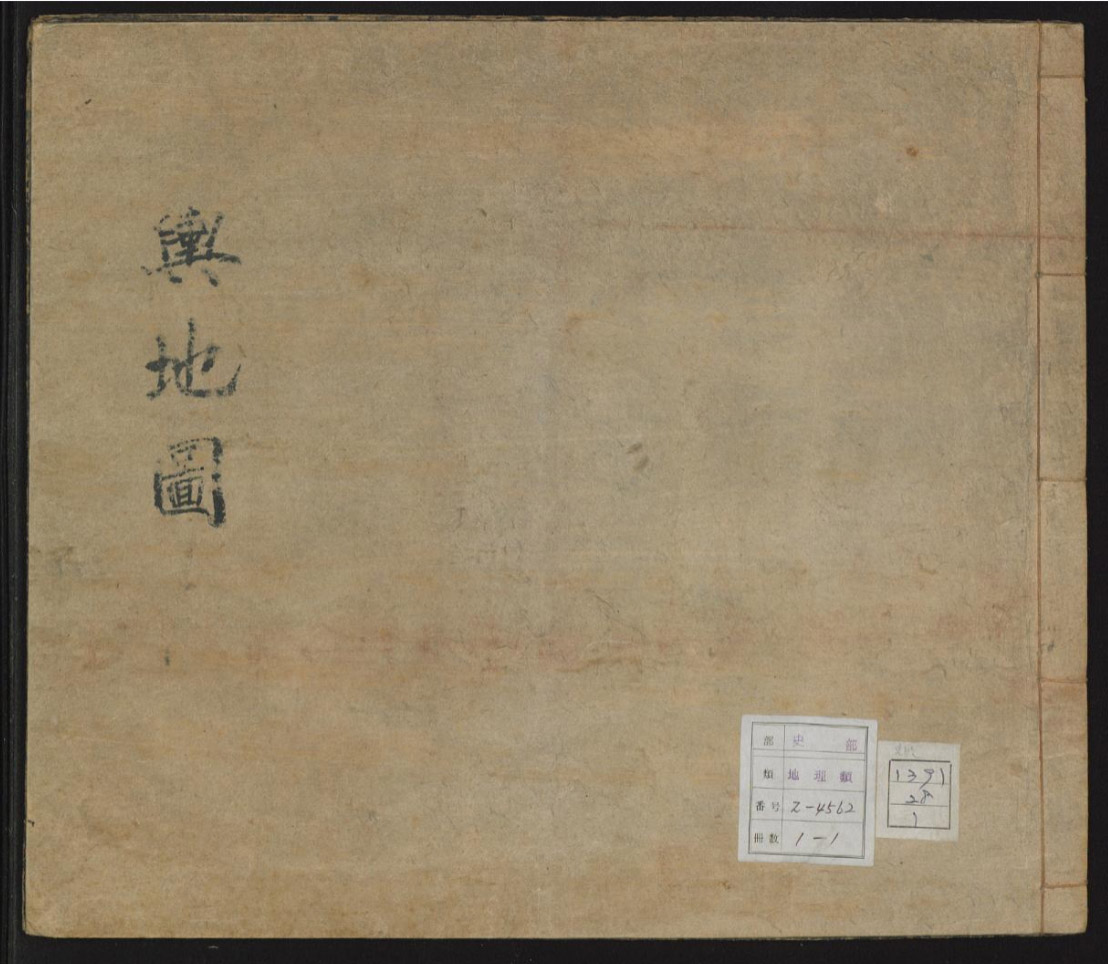 輿地圖
部 史部
類 地理類
番号 Z-4562
冊数 1-1
1391
28
1